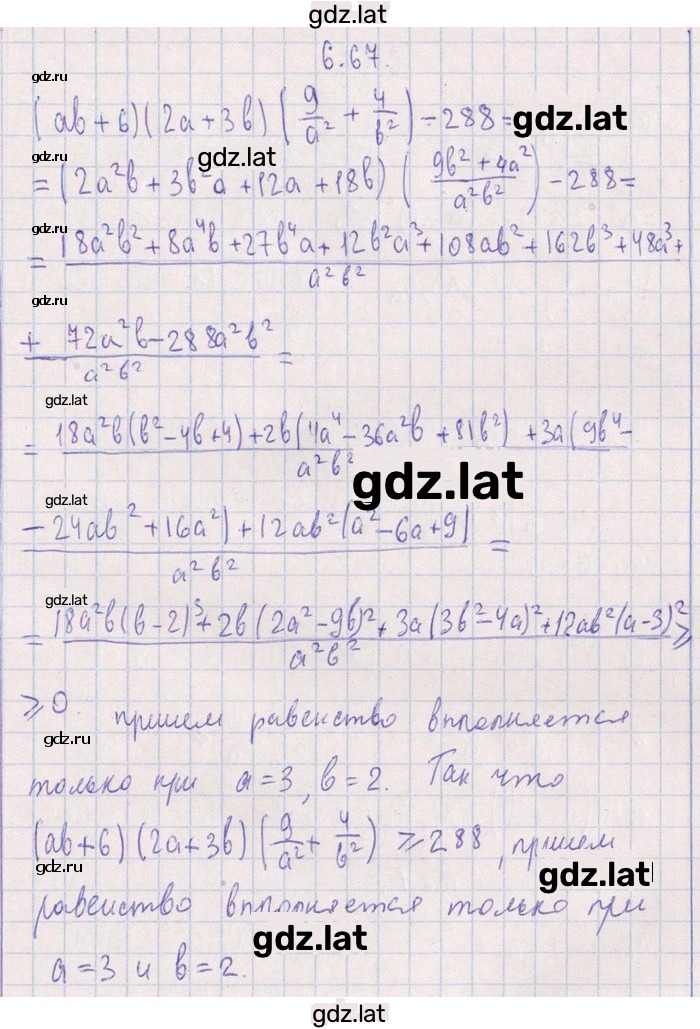 gdz.lat
6.67.
gdz.ru
(ab + 6)(2a + 3b)(9/a² + 4/b²) - 288 =
gdz.lat
gdz.lat
gdz.ru
= (2a²b + 3b²a + 12a + 18b)((9b² + 4a²)/(a²b²)) - 288 =
gdz.ru
= (18a²b² + 8a⁴b + 27b⁴a + 12b²a³ + 108ab² + 162b³ + 48a³ +)/(a²b²)
gdz.ru
(+ 72a²b - 288a²b²)/(a²b²) =
gdz.lat
= (18a²b(b² - 4b + 4) + 2b(4a⁴ - 36a²b + 81b²) + 3a(9b⁴ -)/(a²b²)
gdz.lat
gdz.lat
(- 24ab² + 16a²) + 12ab²(a² - 6a + 9))/(a²b²) =
gdz.lat
= (18a²b(b - 2)² + 2b(2a² - 9b)² + 3a(3b² - 4a)² + 12ab²(a - 3)²)/(a²b²) ⩾
⩾ 0. причем равенство выполняется
gdz.ru
только при a = 3, b = 2. Так что
(ab + 6)(2a + 3b)(9/a² + 4/b²) ⩾ 288, причем
gdz.ru
gdz.lat
равенство выполняется только при
gdz.lat
a = 3 и b = 2.
gdz.lat